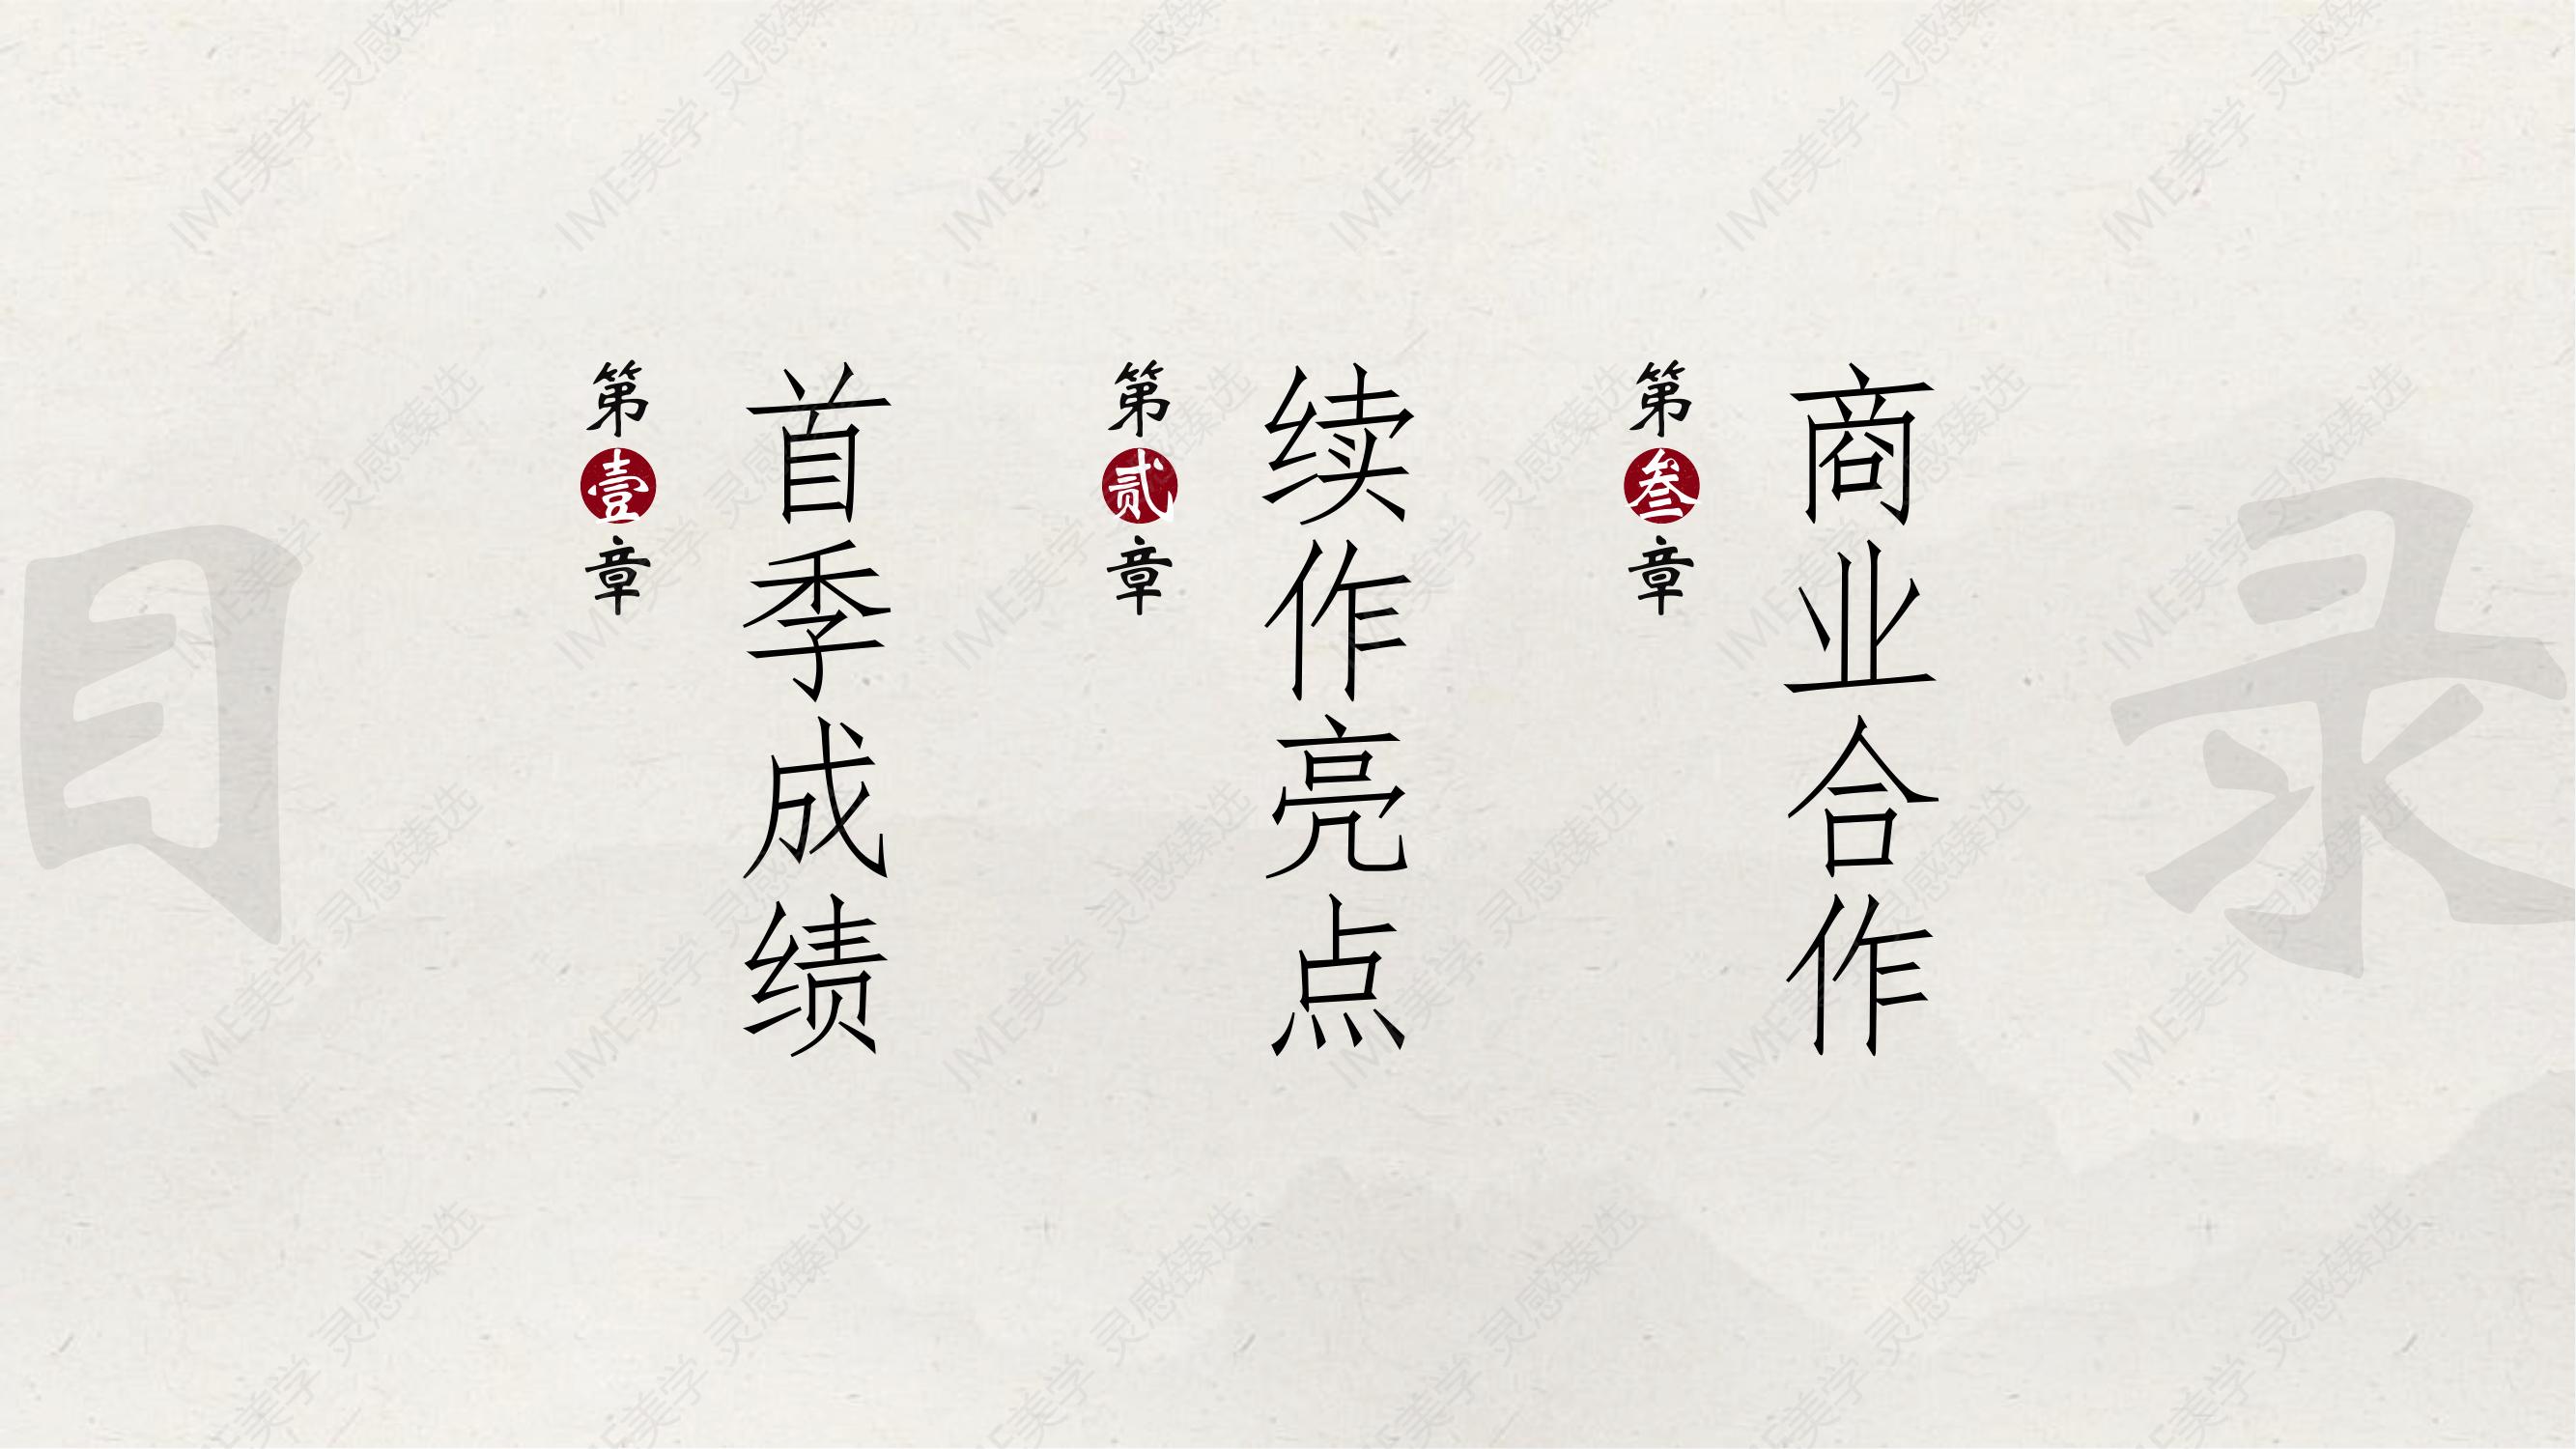 目录
第壹章
首季成绩
第贰章
续作亮点
第叁章
商业合作
IME美学 灵感臻选